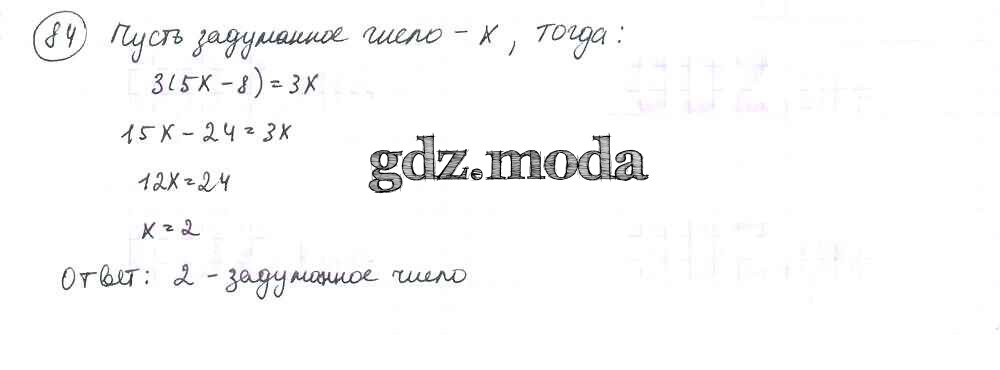 84 Пусть задуманное число - x, тогда:
3(5x - 8) = 3x
15x - 24 = 3x
gdz.moda
12x = 24
x = 2
Ответ: 2 - задуманное число